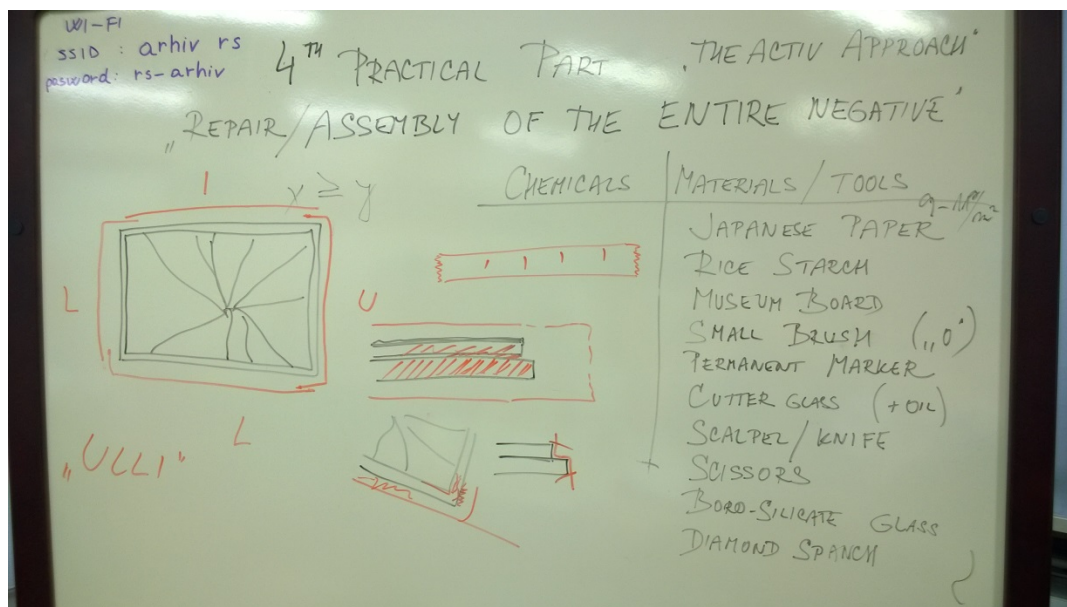 WI-FI
SSID : arhiv rs
pasword: rs-arhiv
4TH PRACTICAL PART „THE ACTIV APPROACH"
„REPAIR/ASSEMBLY OF THE ENTIRE NEGATIVE"
I
x ≥ y
L
U
L
„ULLI"
CHEMICALS
MATERIALS / TOOLS
JAPANESE PAPER
RICE STARCH
MUSEUM BOARD
SMALL BRUSH („0")
PERMANENT MARKER
CUTTER GLASS (+OIL)
SCALPEL/KNIFE
SCISSORS
BORO-SILICATE GLASS
DIAMOND SPANCH